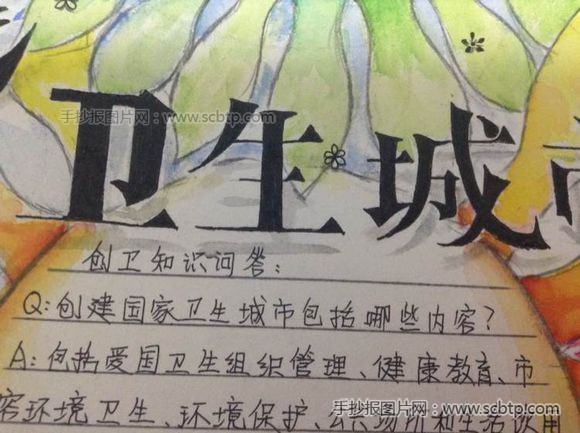 手抄报图片网：www.scbtp.com
卫生城市
创卫知识问答：
Q:创建国家卫生城市包括哪些内容？
A:包括爱国卫生组织管理、健康教育、市
容环境卫生、环境保护、公共场所和生活饮用
手抄报图片网：www.scbtp.com